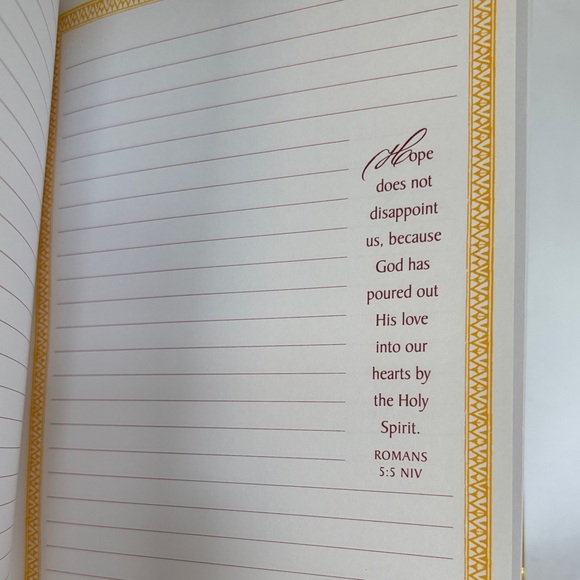 Hope
does not
disappoint
us, because
God has
poured out
His love
into our
hearts by
the Holy
Spirit.
ROMANS
5:5 NIV